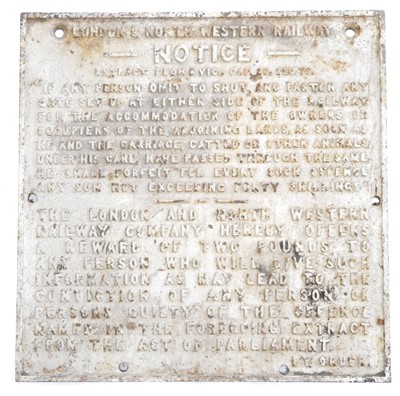 LONDON & NORTH WESTERN RAILWAY
NOTICE
EXTRACT FROM 8 VIC. CAP.
"IF ANY PERSON OMIT TO SHUT, AND FASTEN ANY
GATE SET UP AT EITHER SIDE OF THE RAILWAY
FOR THE ACCOMMODATION OF THE OWNERS OR
OCCUPIERS OF THE ADJOINING LANDS, AS SOON AS
HE AND THE CARRIAGE, CATTLE OR OTHER ANIMALS,
UNDER HIS CARE, HAVE PASSED THROUGH THE SAME,
HE SHALL FORFEIT FOR EVERY SUCH OFFENCE
ANY SUM NOT EXCEEDING FORTY SHILLINGS."
THE LONDON AND NORTH WESTERN
RAILWAY COMPANY HEREBY OFFERS
A REWARD OF TWO POUNDS TO
ANY PERSON WHO WILL GIVE SUCH
INFORMATION AS MAY LEAD TO THE
CONVICTION OF ANY PERSON OR
PERSONS GUILTY OF THE OFFENCE
NAMED IN THE FOREGOING EXTRACT
FROM THE ACT OF PARLIAMENT.
BY ORDER.